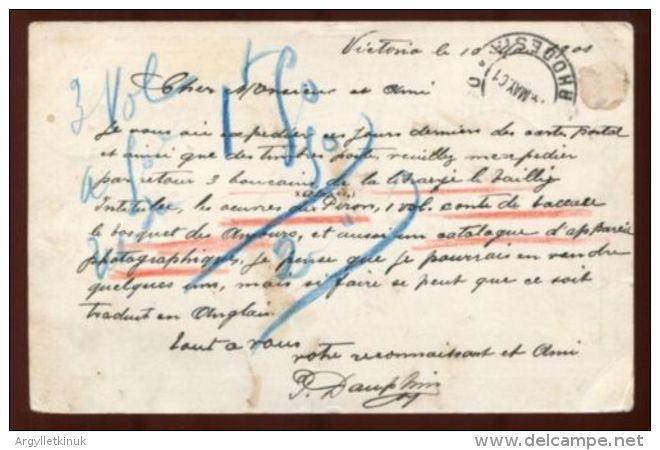 Victoria le 10 Mai 1901
RHODESIA
MAY 01
Cher Monsieur et Ami
3 Vol
Je vous ai expedier ces jours derniers des cartes postal
et ainsi que des timbres poste, veuillez m'expedier
par retour 3 boucains de la librairie le Bailly
Intituler, les oeuvres de Piron, 1 vol. conte de Boccace
le bosquet des Amours, et aussi un catalogue d'appareil
photographique, Je pense que Je pourrais en vendre
quelques uns, mais si faire se peut que ce soit
traduit en Anglais.
tout a vous
votre reconnaissant et Ami
P. Dauphin
Argylletkinuk
delcampe.net